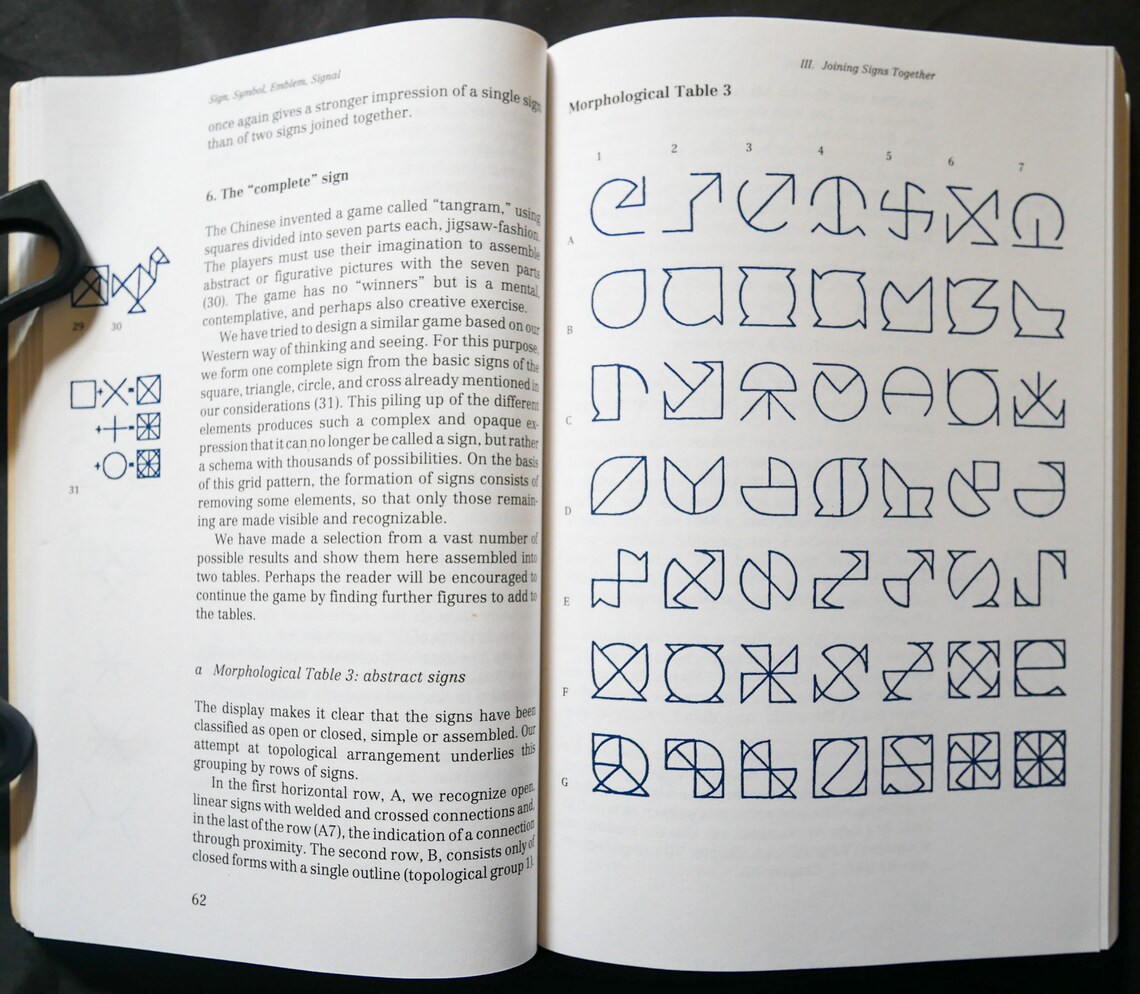 Sign, Symbol, Emblem, Signal
once again gives a stronger impression of a single sign
than of two signs joined together.
6. The “complete” sign
The Chinese invented a game called “tangram,” using
squares divided into seven parts each, jigsaw-fashion.
The players must use their imagination to assemble
abstract or figurative pictures with the seven parts
(30). The game has no “winners” but is a mental,
contemplative, and perhaps also creative exercise.
We have tried to design a similar game based on our
Western way of thinking and seeing. For this purpose,
we form one complete sign from the basic signs of the
square, triangle, circle, and cross already mentioned in
our considerations (31). This piling up of the different
elements produces such a complex and opaque ex-
pression that it can no longer be called a sign, but rather
a schema with thousands of possibilities. On the basis
of this grid pattern, the formation of signs consists of
removing some elements, so that only those remain-
ing are made visible and recognizable.
We have made a selection from a vast number of
possible results and show them here assembled into
two tables. Perhaps the reader will be encouraged to
continue the game by finding further figures to add to
the tables.
a Morphological Table 3: abstract signs
The display makes it clear that the signs have been
classified as open or closed, simple or assembled. Our
attempt at topological arrangement underlies this
grouping by rows of signs.
In the first horizontal row, A, we recognize open,
linear signs with welded and crossed connections and,
in the last of the row (A7), the indication of a connection
through proximity. The second row, B, consists only of
closed forms with a single outline (topological group 1).
29 30
31
62
III. Joining Signs Together
Morphological Table 3
1 2 3 4 5 6 7
A
B
C
D
E
F
G